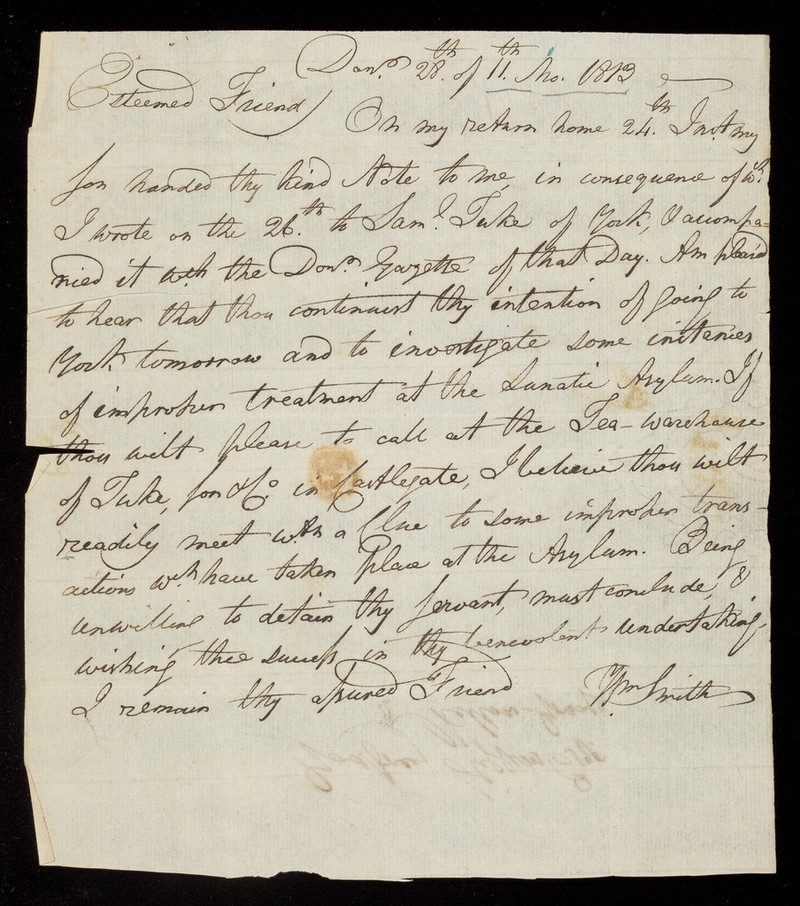 Donr. 28th. of 11th. Mo. 1813
Esteemed Friend
On my return home 24th. Inst. my
son handed thy kind Note to me, in consequence of wh.
I wrote on the 26th. to Saml. Tuke of York, & accompa=
nied it with the Donr. Gazette of that Day. Am pleas'd
to hear that thou continuest thy intention of going to
York tomorrow and to investigate some instances
of improper treatment at the Lunatic Asylum. If
thou wilt please to call at the Tea-warehouse
of Tuke, son & Co. in Castlegate, I believe thou wilt
readily meet with a Clue to some improper trans-
actions wh. have taken Place at the Asylum. Being
unwilling to detain thy servant, must conclude, &
wishing thee success in thy benevolent undertaking,
I remain thy assured Friend Wm. Smith